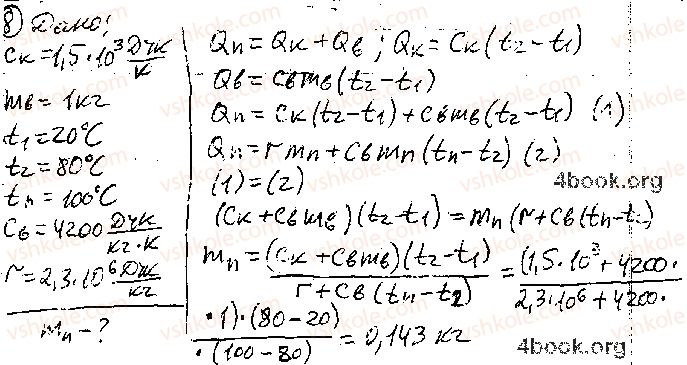 8) Дано:
Cк = 1,5·10³ Дж/К
mв = 1кг
t1 = 20°C
t2 = 80°C
tп = 100°C
Cв = 4200 Дж/кг·К
r = 2,3·10⁶ Дж/кг
mп - ?
Qп = Qк + Qв ; Qк = Cк(t2 - t1)
Qв = Cвmв(t2 - t1)
Qп = Cк(t2 - t1) + Cвmв(t2 - t1) (1)
Qп = rmп + Cвmп(tп - t2) (2)
(1) = (2)
4book.org
(Cк + Cвmв)(t2 - t1) = mп(r + Cв(tп - t2)
mп = (Cк + Cвmв)(t2 - t1) / r + Cв(tп - t2) = (1,5·10³ + 4200· / 2,3·10⁶ + 4200·
·1)·(80 - 20) / ·(100 - 80) = 0,143 кг
4book.org
vshkole.com